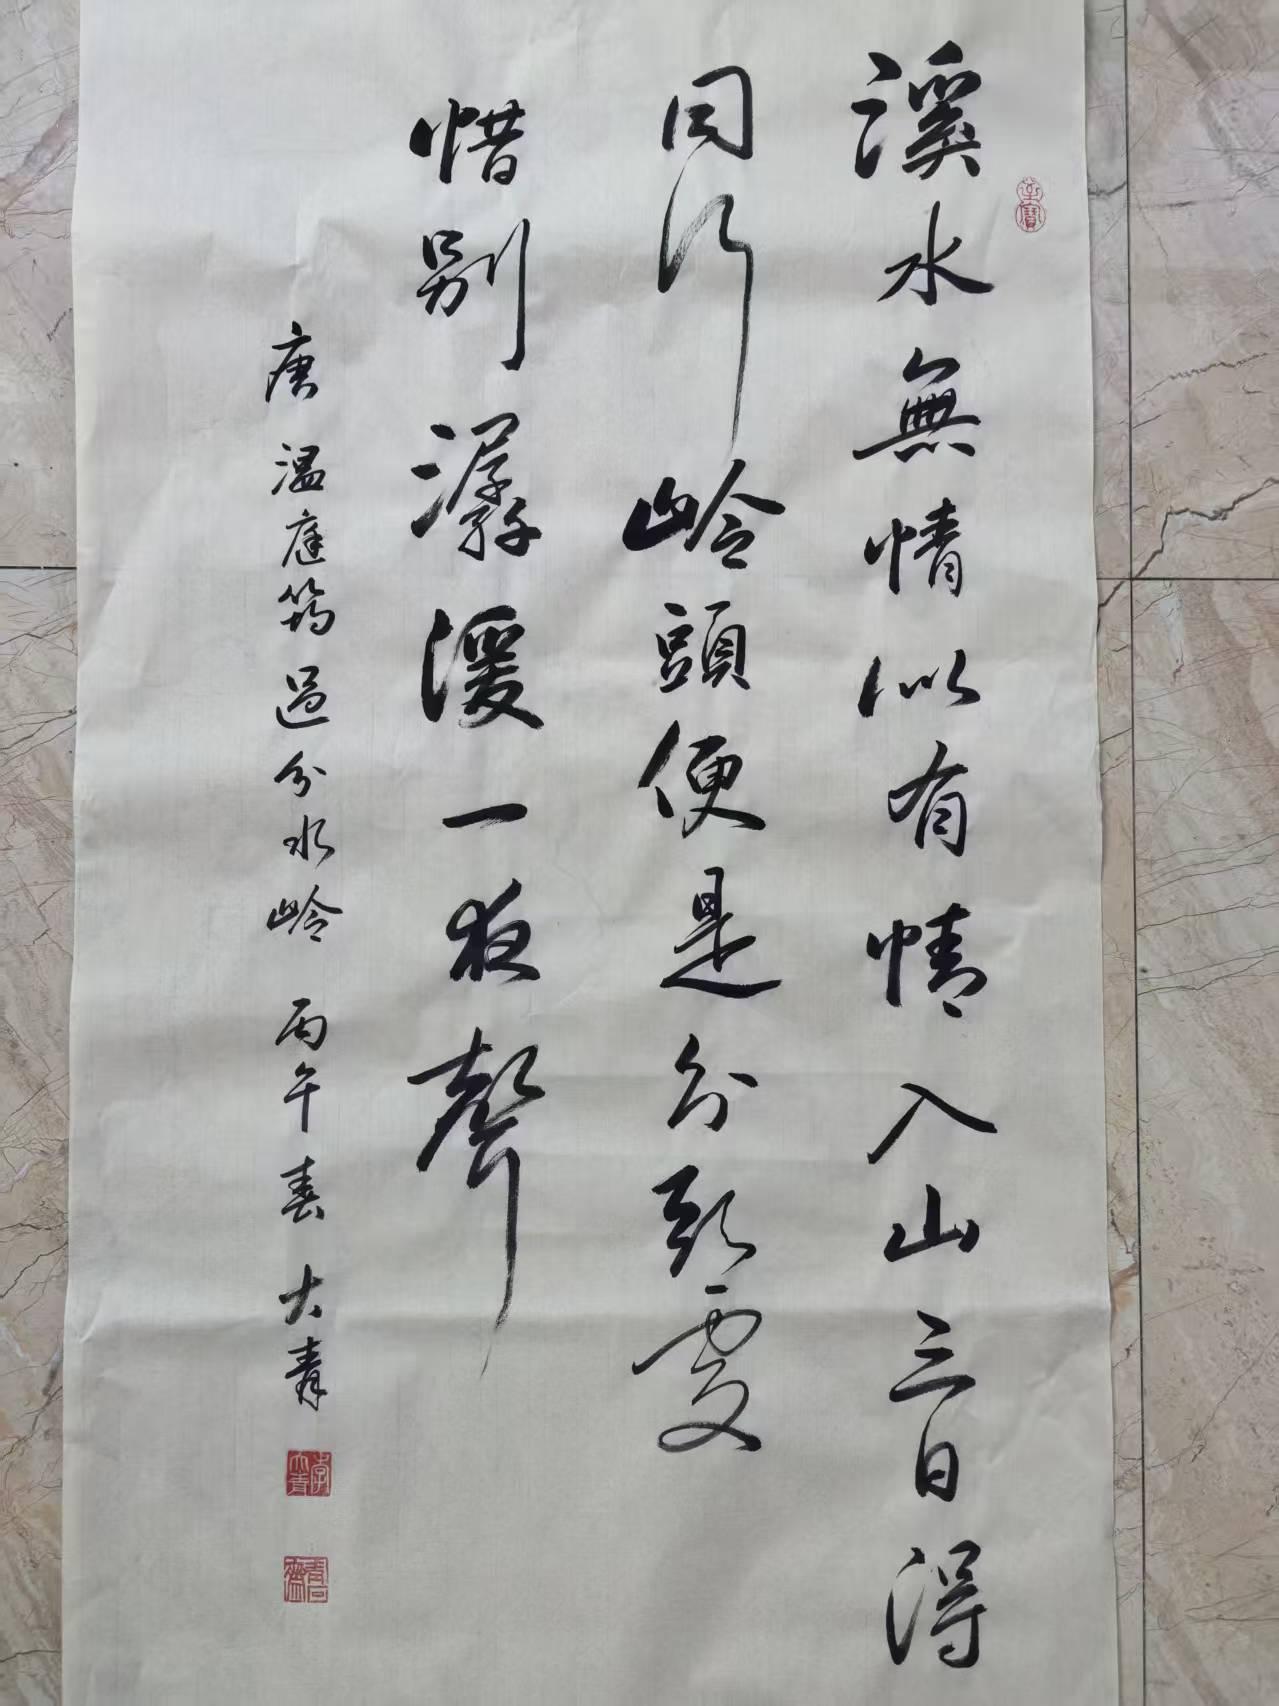 溪水無情似有情入山三日得
同行岭頭便是分头處
惜别潺湲一夜聲
唐 温庭筠過分水岭 丙午春 大青
李大青